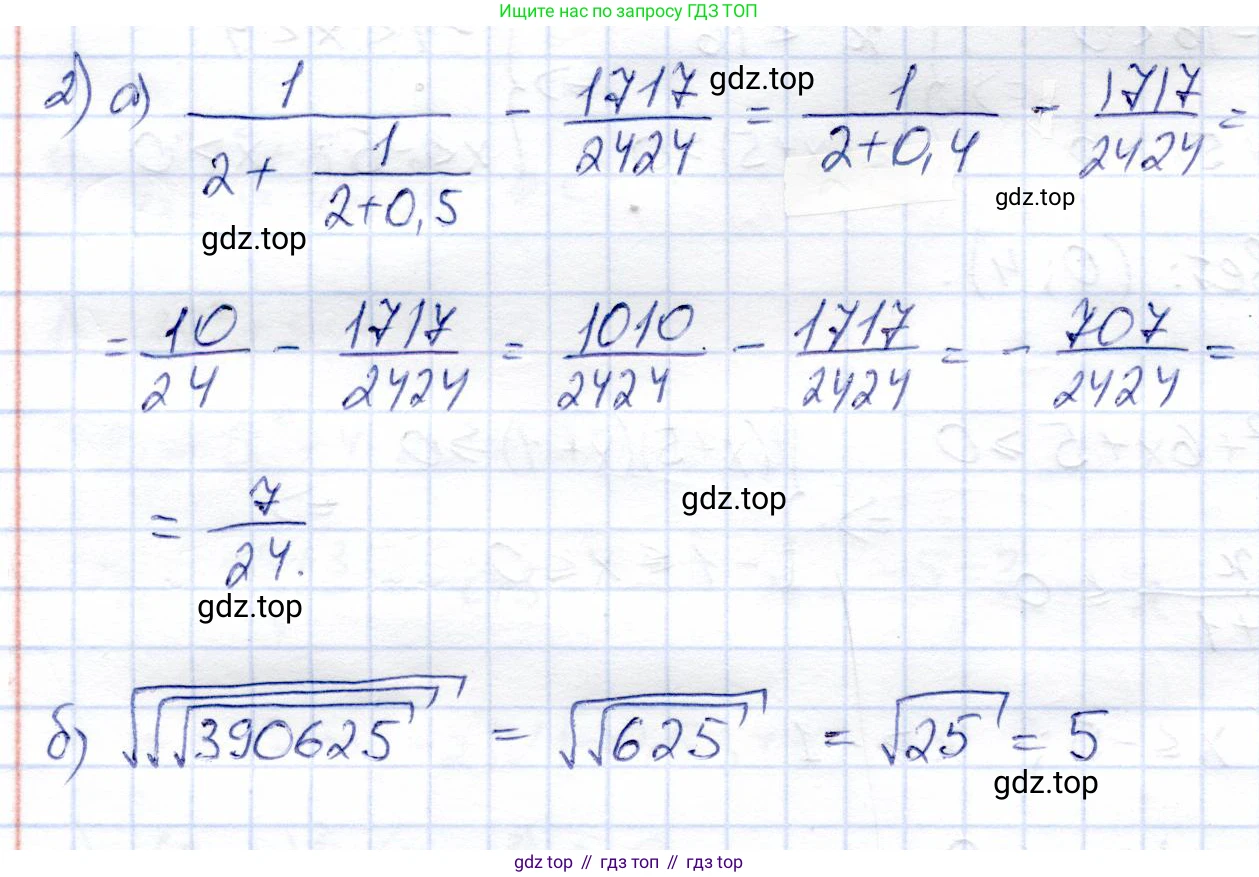 Ищите нас по запросу ГДЗ ТОП
2) а) 1/(2 + 1/(2+0,5)) - 1717/2424 = 1/(2+0,4) - 1717/2424 =
gdz.top
gdz.top
gdz.top
= 10/24 - 1717/2424 = 1010/2424 - 1717/2424 = - 707/2424 =
= 7/24.
gdz.top
gdz.top
б) √√√390625 = √√625 = √25 = 5
gdz.top
gdz.top // гдз топ // гдз top